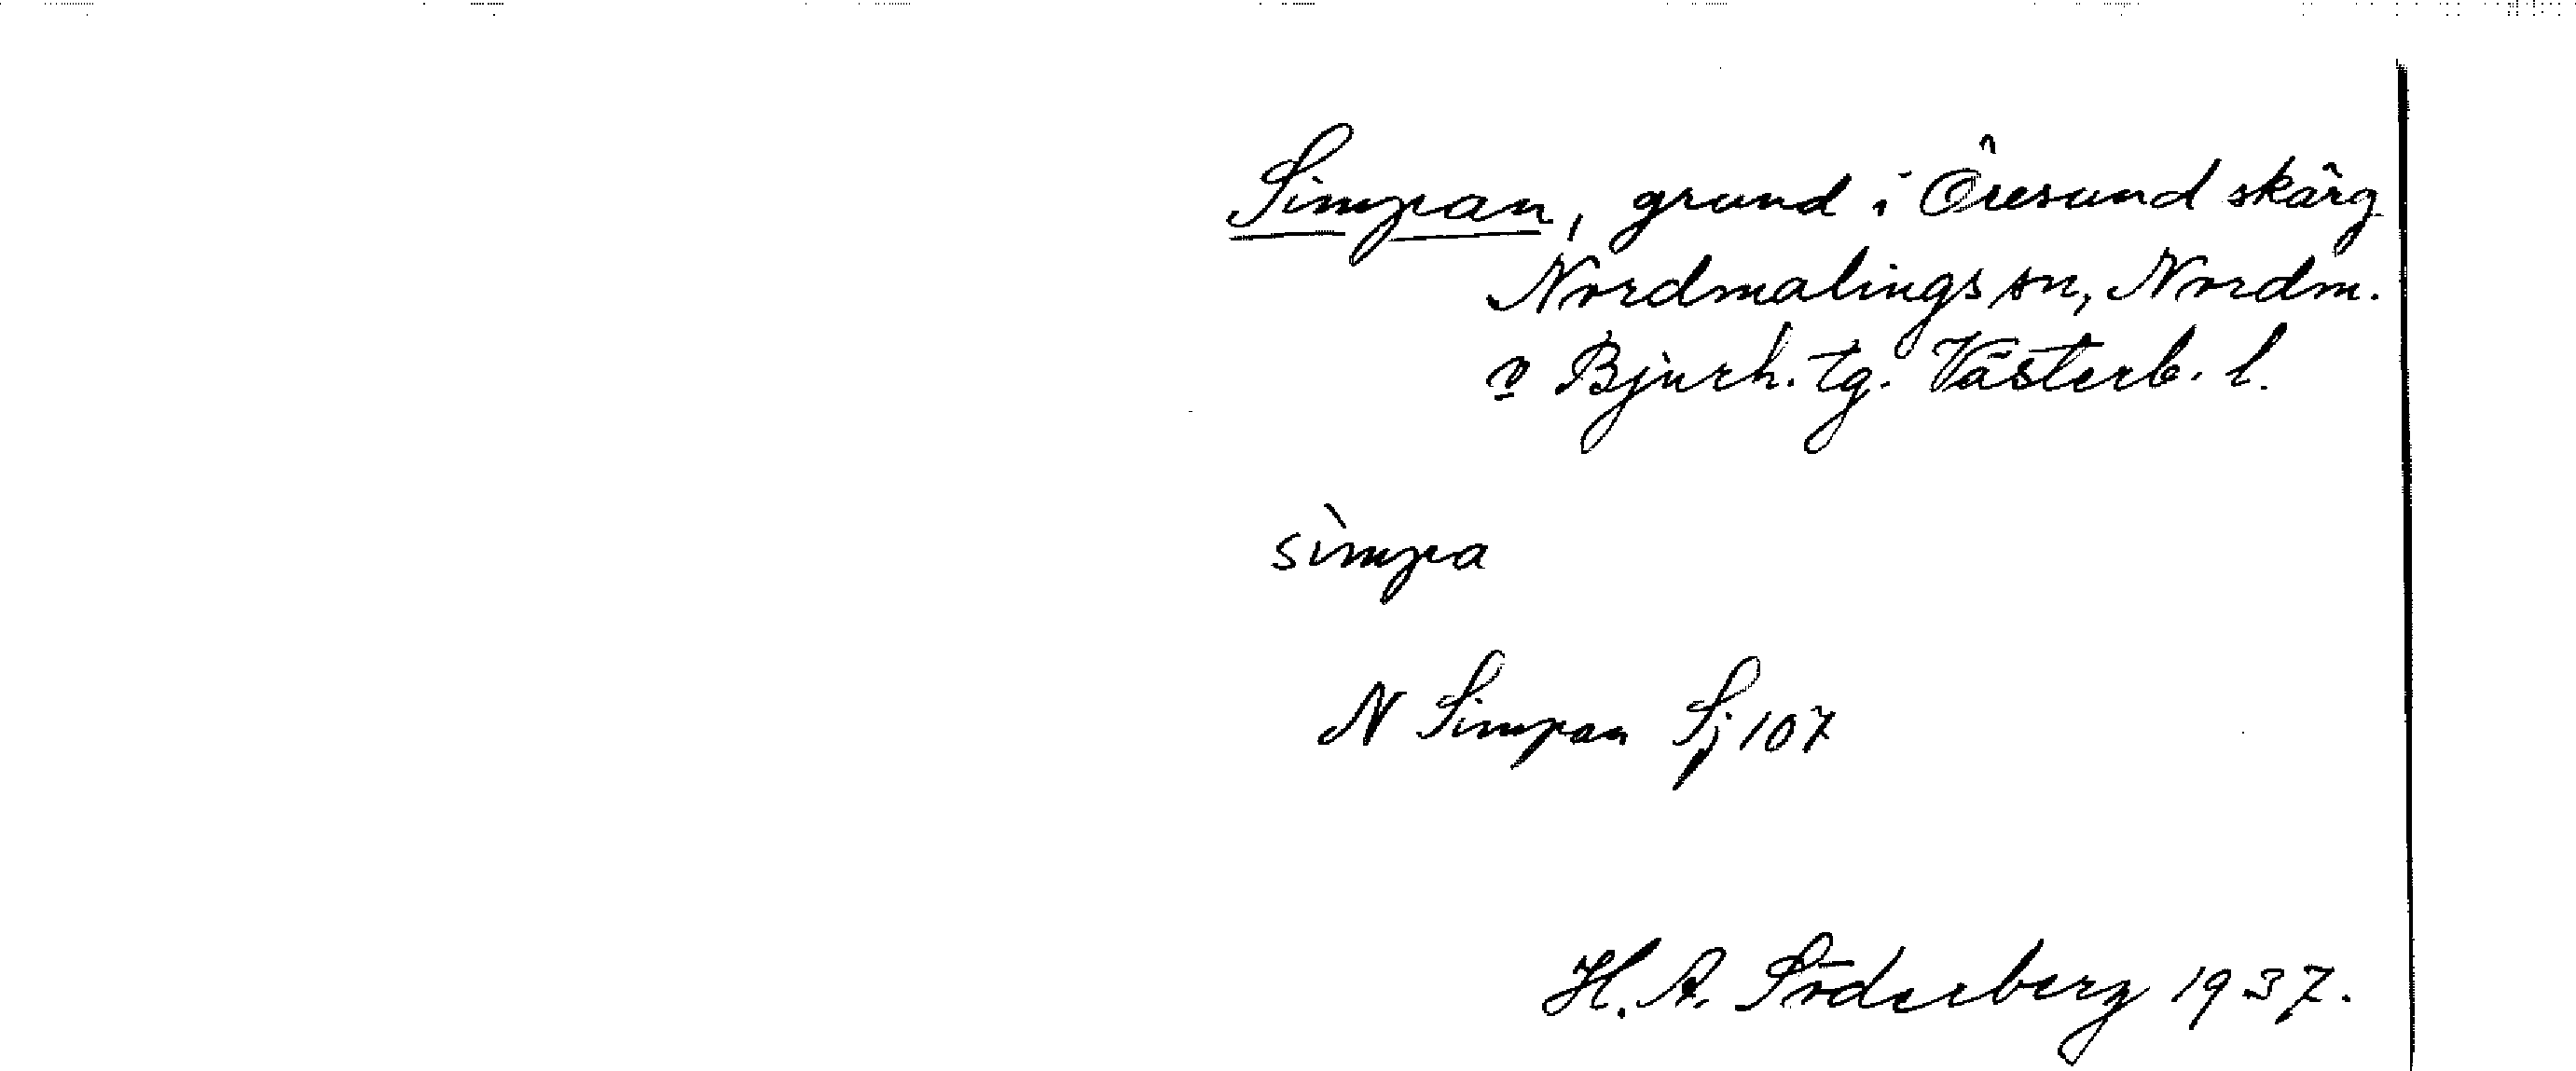 Simpan, grund i Öresund skärg
Nordmalings sn, Nordm.
o Bjurh. tg. Västerb. l.
sìmpa
N Simpan Sj 107
H. A. Söderberg 1937.